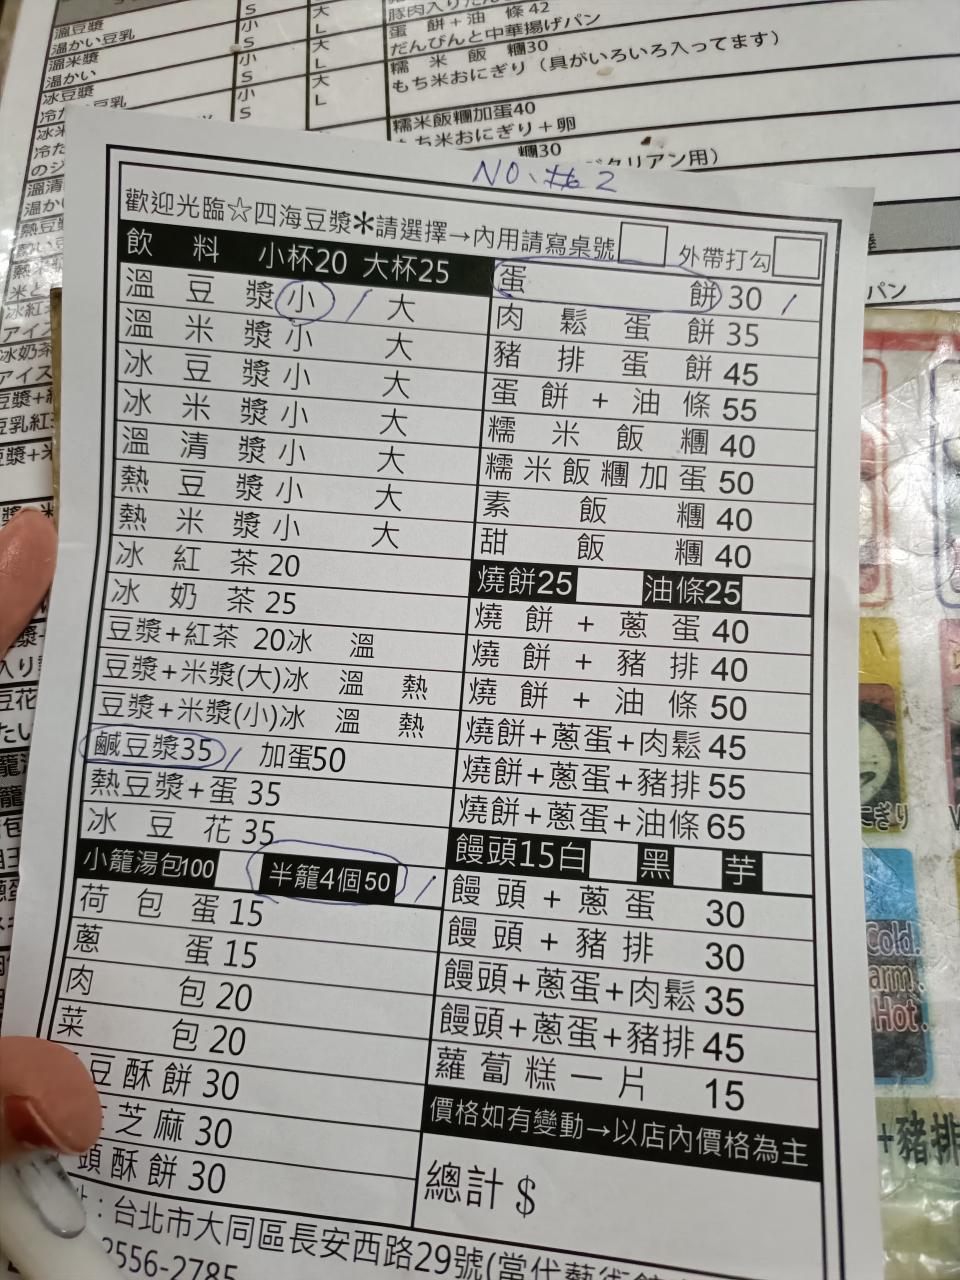 溫豆漿
小
大
溫かい豆乳
S
L
溫米漿
小
大
温かい
S
L
冰豆漿
小
大
S
L
蛋餅+油條42
だんぴんと中華揚げパン
糯米飯糰30
もち米おにぎり（具がいろいろ入ってます）
糯米飯糰加蛋40
もち米おにぎり+卵
糰30
NO. #6 2
歡迎光臨☆四海豆漿✻請選擇→內用請寫桌號
外帶打勾
飲料 小杯20 大杯25
溫豆漿小 / 大
溫米漿小 大
冰豆漿小 大
冰米漿小 大
溫清漿小 大
熱豆漿小 大
熱米漿小 大
冰紅茶20
冰奶茶25
豆漿+紅茶 20冰 溫
豆漿+米漿(大)冰 溫 熱
豆漿+米漿(小)冰 溫 熱
鹹豆漿35 / 加蛋50
熱豆漿+蛋35
冰豆花35
小籠湯包100 半籠4個50 /
荷包蛋15
蔥蛋15
肉包20
菜包20
豆酥餅30
芝麻30
頭酥餅30
蛋餅30 /
肉鬆蛋餅35
豬排蛋餅45
蛋餅+油條55
糯米飯糰40
糯米飯糰加蛋50
素飯糰40
甜飯糰40
燒餅25 油條25
燒餅+蔥蛋40
燒餅+豬排40
燒餅+油條50
燒餅+蔥蛋+肉鬆45
燒餅+蔥蛋+豬排55
燒餅+蔥蛋+油條65
饅頭15白 黑 芋
饅頭+蔥蛋 30
饅頭+豬排 30
饅頭+蔥蛋+肉鬆35
饅頭+蔥蛋+豬排45
蘿蔔糕一片 15
價格如有變動→以店內價格為主
總計 $
：台北市大同區長安西路29號(當代藝術館
2556-2785
パン
にぎり
Cold.
arm.
Hot.
+豬排